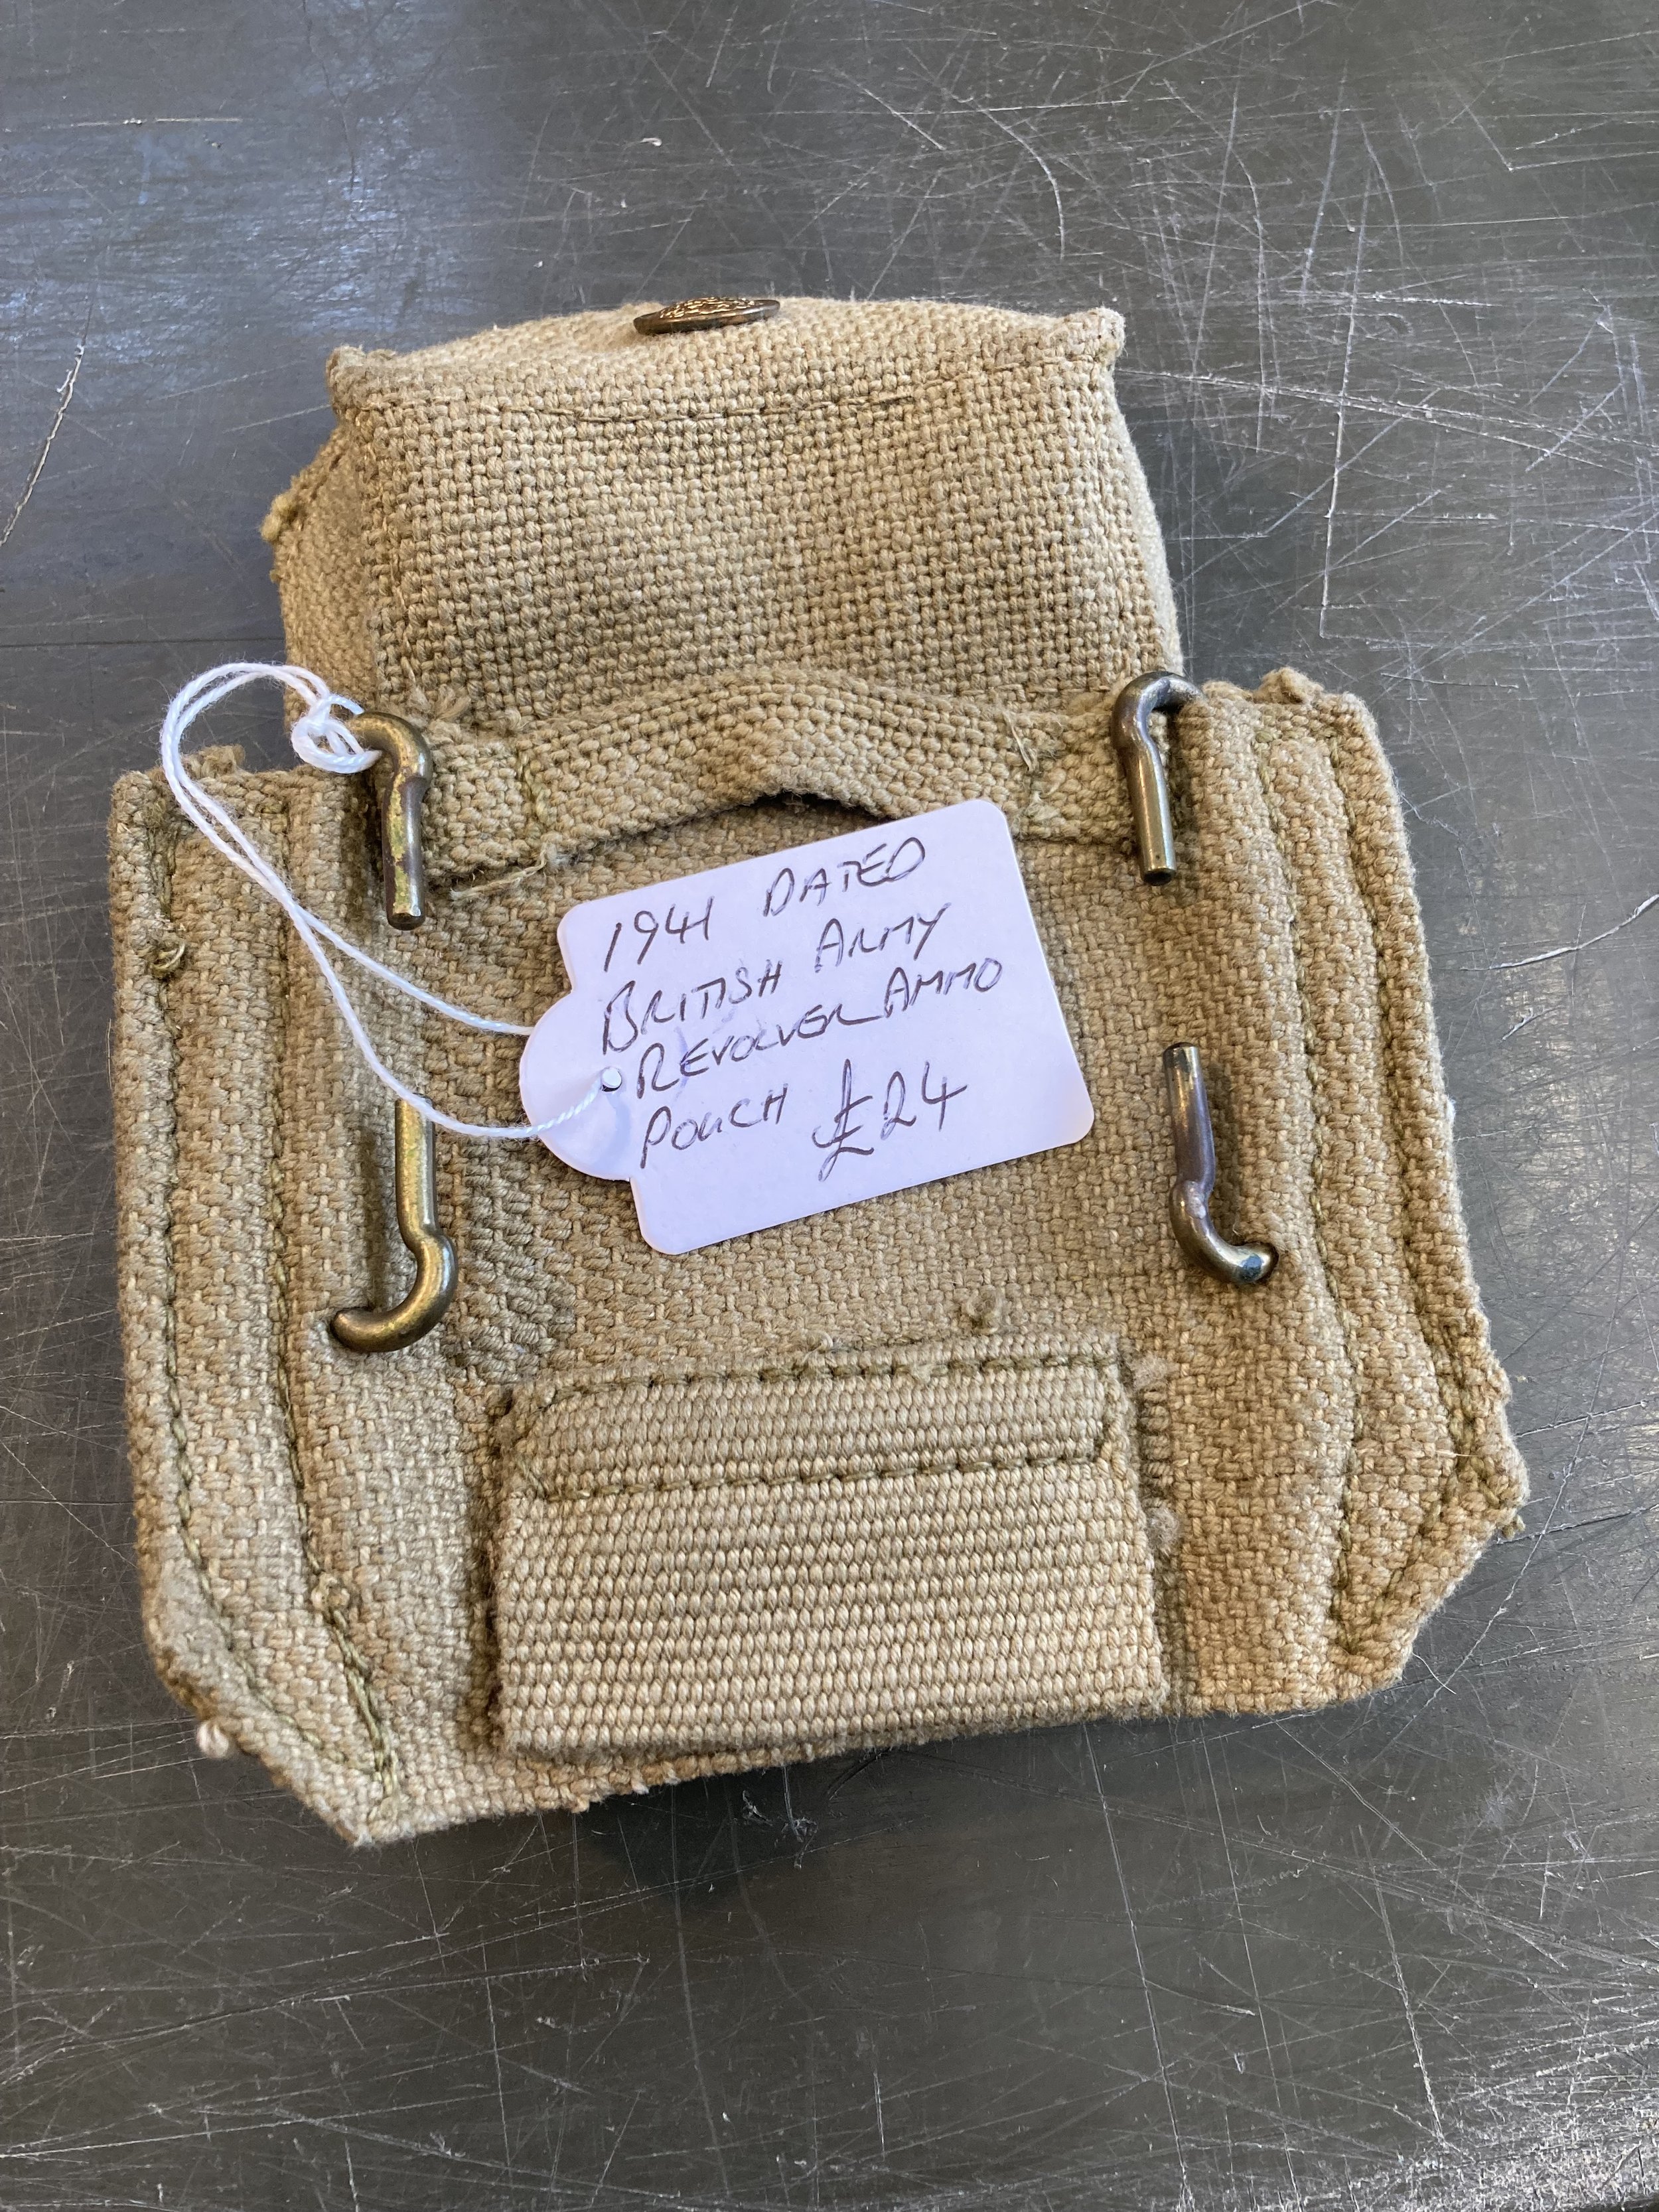 1941 DATED
BRITISH ARMY
REVOLVER AMMO
POUCH £24